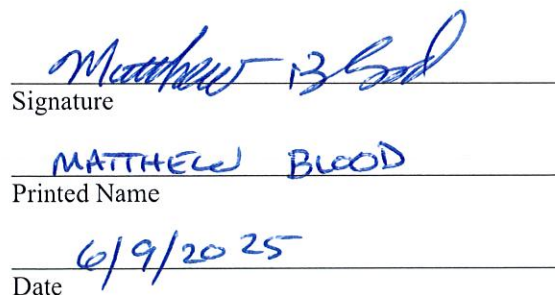 Matthew Blood
Signature
MATTHEW BLOOD
Printed Name
6/9/2025
Date